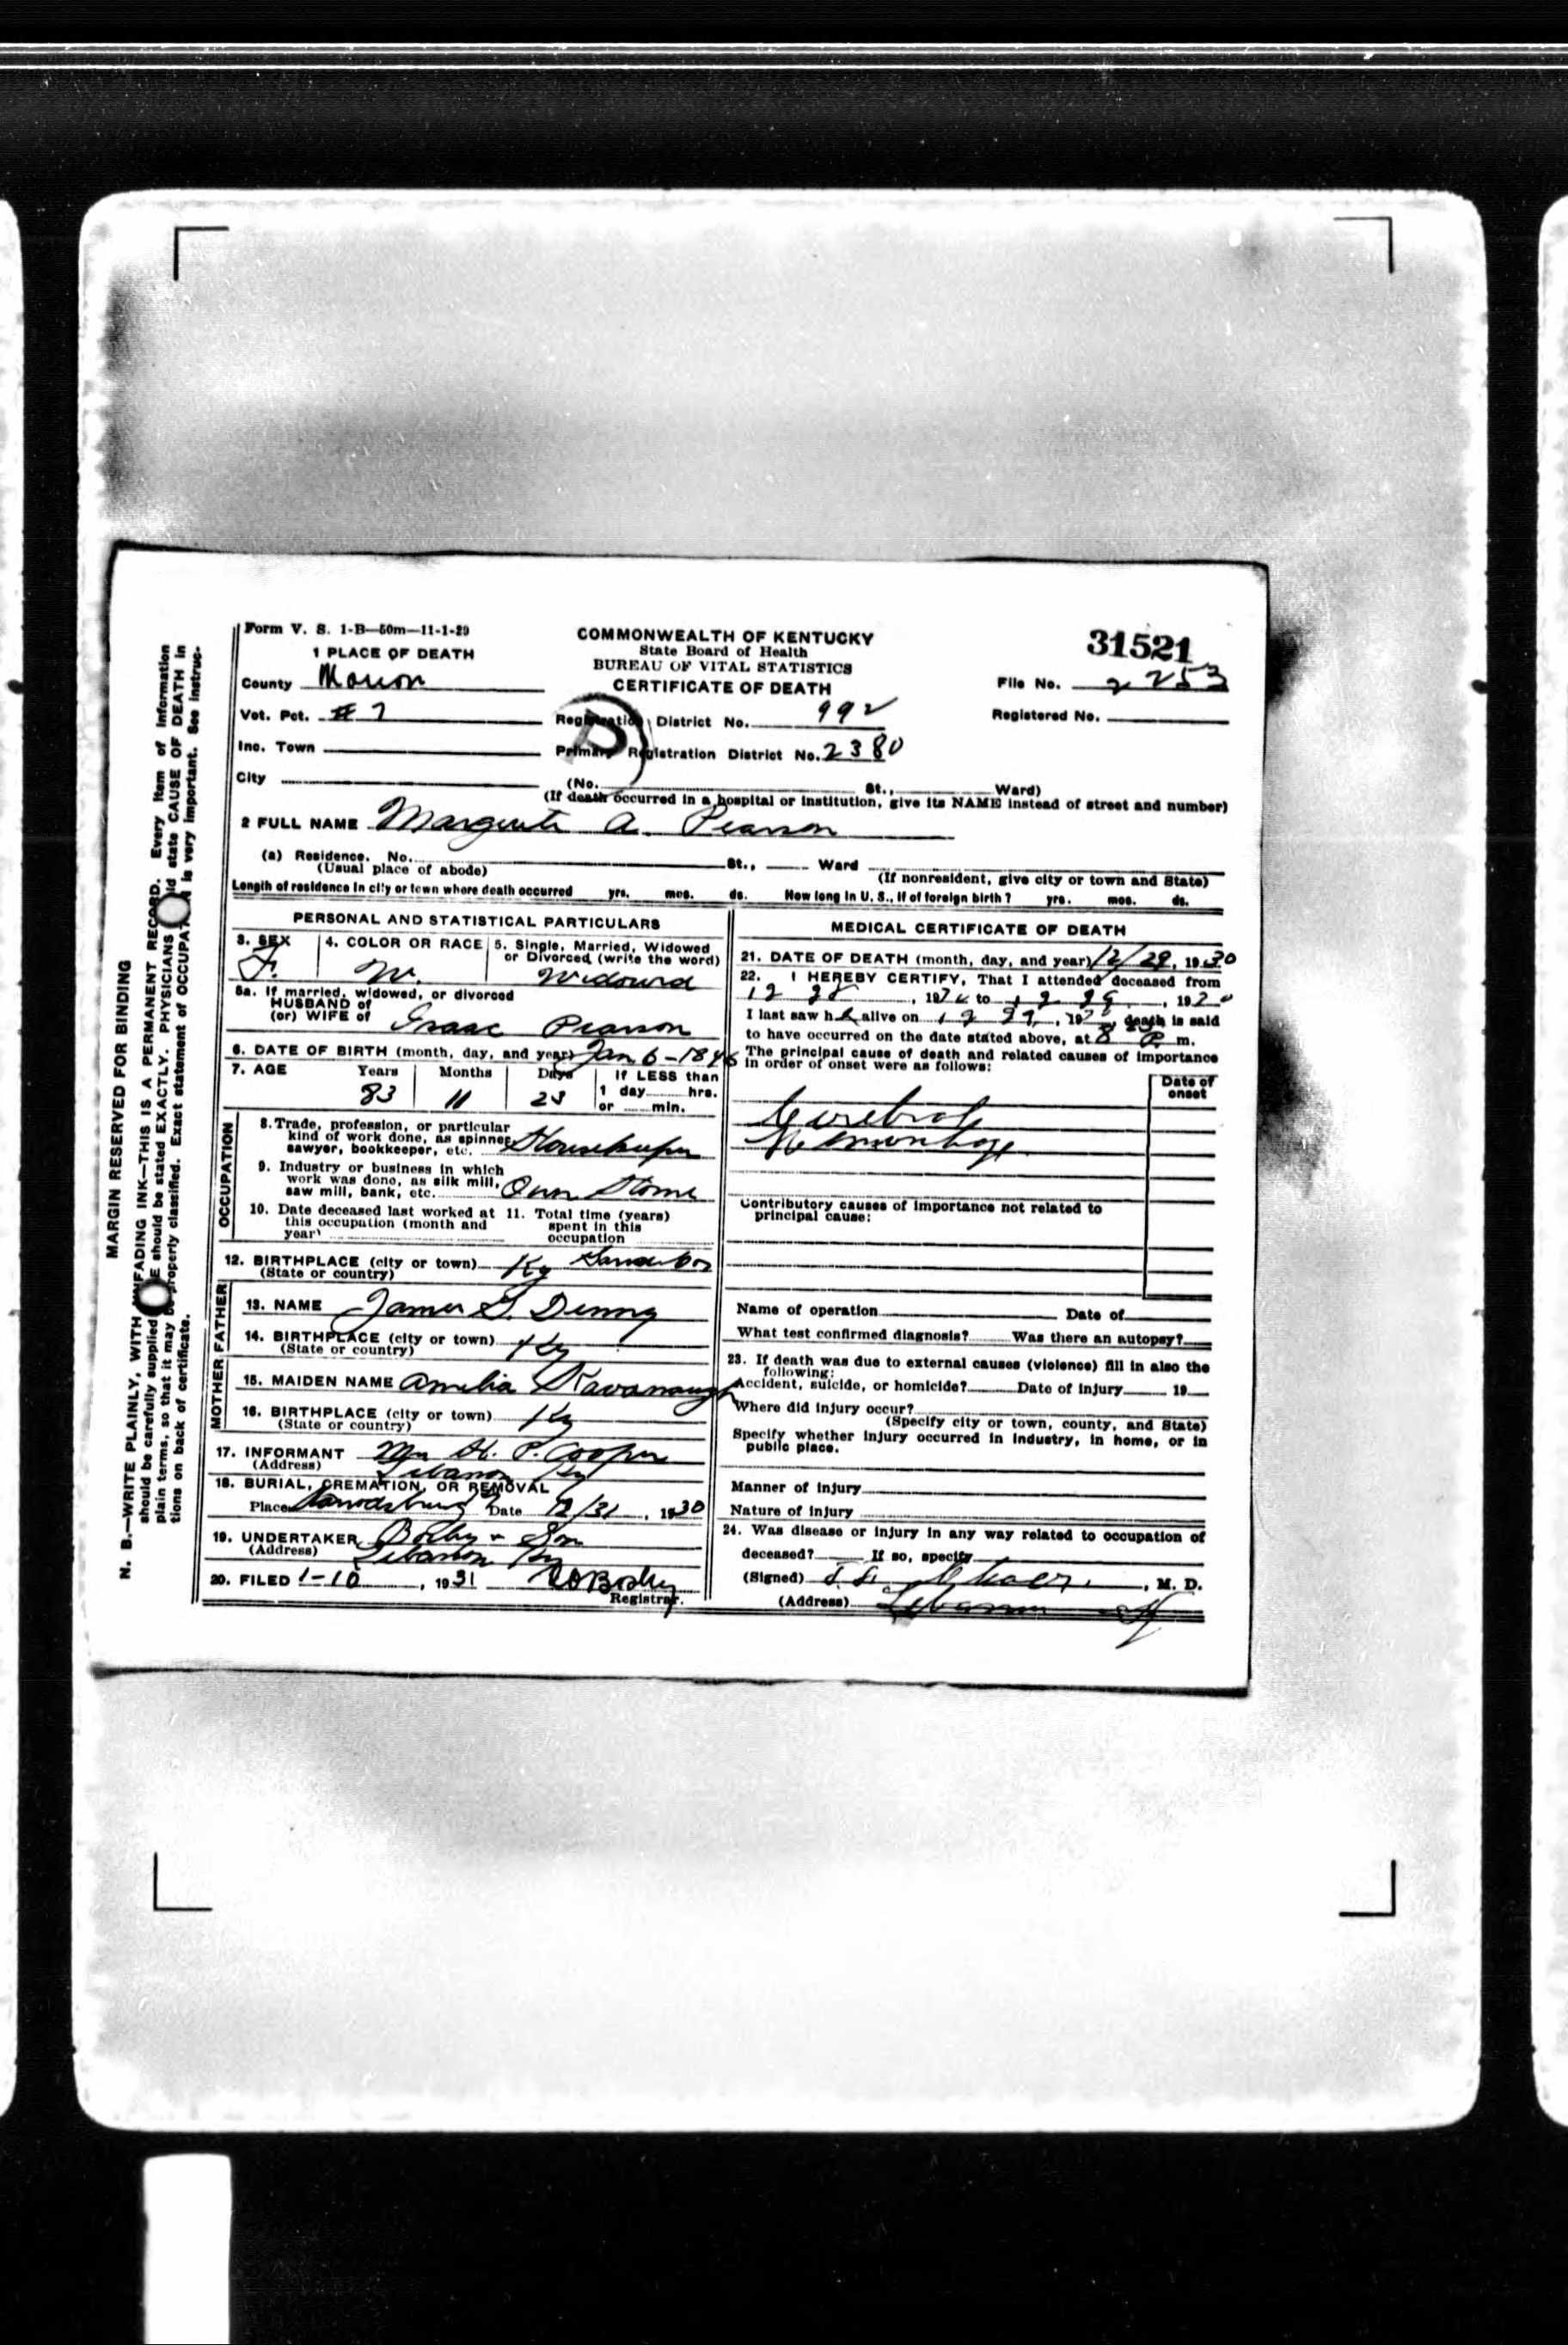 Form V. S. 1-B—50m—11-1-29
COMMONWEALTH OF KENTUCKY
State Board of Health
BUREAU OF VITAL STATISTICS
CERTIFICATE OF DEATH
31521
1 PLACE OF DEATH
County Marion
File No. 2253
Vot. Pct. # 7
Registration District No. 992
Registered No.
Inc. Town
Primary Registration District No. 2380
City (No. St., Ward)
(If death occurred in a hospital or institution, give its NAME instead of street and number)
2 FULL NAME Marguerite A. Pearson
(a) Residence. No. St., Ward
(Usual place of abode) (If nonresident, give city or town and State)
Length of residence in city or town where death occurred yrs. mos. ds. How long in U. S., if of foreign birth? yrs. mos. ds.
PERSONAL AND STATISTICAL PARTICULARS
3. SEX 4. COLOR OR RACE 5. Single, Married, Widowed
or Divorced (write the word)
F. W. Widowed
5a. If married, widowed, or divorced
HUSBAND of
(or) WIFE of Isaac Pearson
6. DATE OF BIRTH (month, day, and year) Jan 6-1846
7. AGE Years Months Days If LESS than
83 11 23 1 day hrs.
or min.
OCCUPATION
8. Trade, profession, or particular
kind of work done, as spinner,
sawyer, bookkeeper, etc. Housekeeper
9. Industry or business in which
work was done, as silk mill,
saw mill, bank, etc. Own Home
10. Date deceased last worked at
this occupation (month and
year)
11. Total time (years)
spent in this
occupation
12. BIRTHPLACE (city or town)
(State or country) Ky
FATHER
13. NAME James S. Denny
14. BIRTHPLACE (city or town)
(State or country) Ky
MOTHER
15. MAIDEN NAME Amelia Kavanaugh
16. BIRTHPLACE (city or town)
(State or country) Ky
17. INFORMANT H. P. Cooper
(Address) Lebanon Ky
18. BURIAL, CREMATION, OR REMOVAL
Place Harrodsburg Date 12/31, 1930
19. UNDERTAKER Bosley & Son
(Address) Lebanon Ky
20. FILED 1-10, 1931 Bosley
Registrar.
MEDICAL CERTIFICATE OF DEATH
21. DATE OF DEATH (month, day, and year) 12/29, 1930
22. I HEREBY CERTIFY, That I attended deceased from
12 28, 19 to 12 29, 19
I last saw h alive on 12 29, 19 , death is said
to have occurred on the date stated above, at 8 P. m.
The principal cause of death and related causes of importance
in order of onset were as follows:
Date of
onset
Cerebral
Hemorrhage
Contributory causes of importance not related to
principal cause:
Name of operation Date of
What test confirmed diagnosis? Was there an autopsy?
23. If death was due to external causes (violence) fill in also the
following:
Accident, suicide, or homicide? Date of injury 19
Where did injury occur?
(Specify city or town, county, and State)
Specify whether injury occurred in industry, in home, or in
public place.
Manner of injury
Nature of injury
24. Was disease or injury in any way related to occupation of
deceased? If so, specify
(Signed) , M. D.
(Address) Lebanon Ky
MARGIN RESERVED FOR BINDING
N. B.—WRITE PLAINLY, WITH UNFADING INK—THIS IS A PERMANENT RECORD. Every item of information
should be carefully supplied should be stated EXACTLY. PHYSICIANS should state CAUSE OF DEATH in
plain terms, so that it may be properly classified. Exact statement of OCCUPATION is very important. See instruc-
tions on back of certificate.